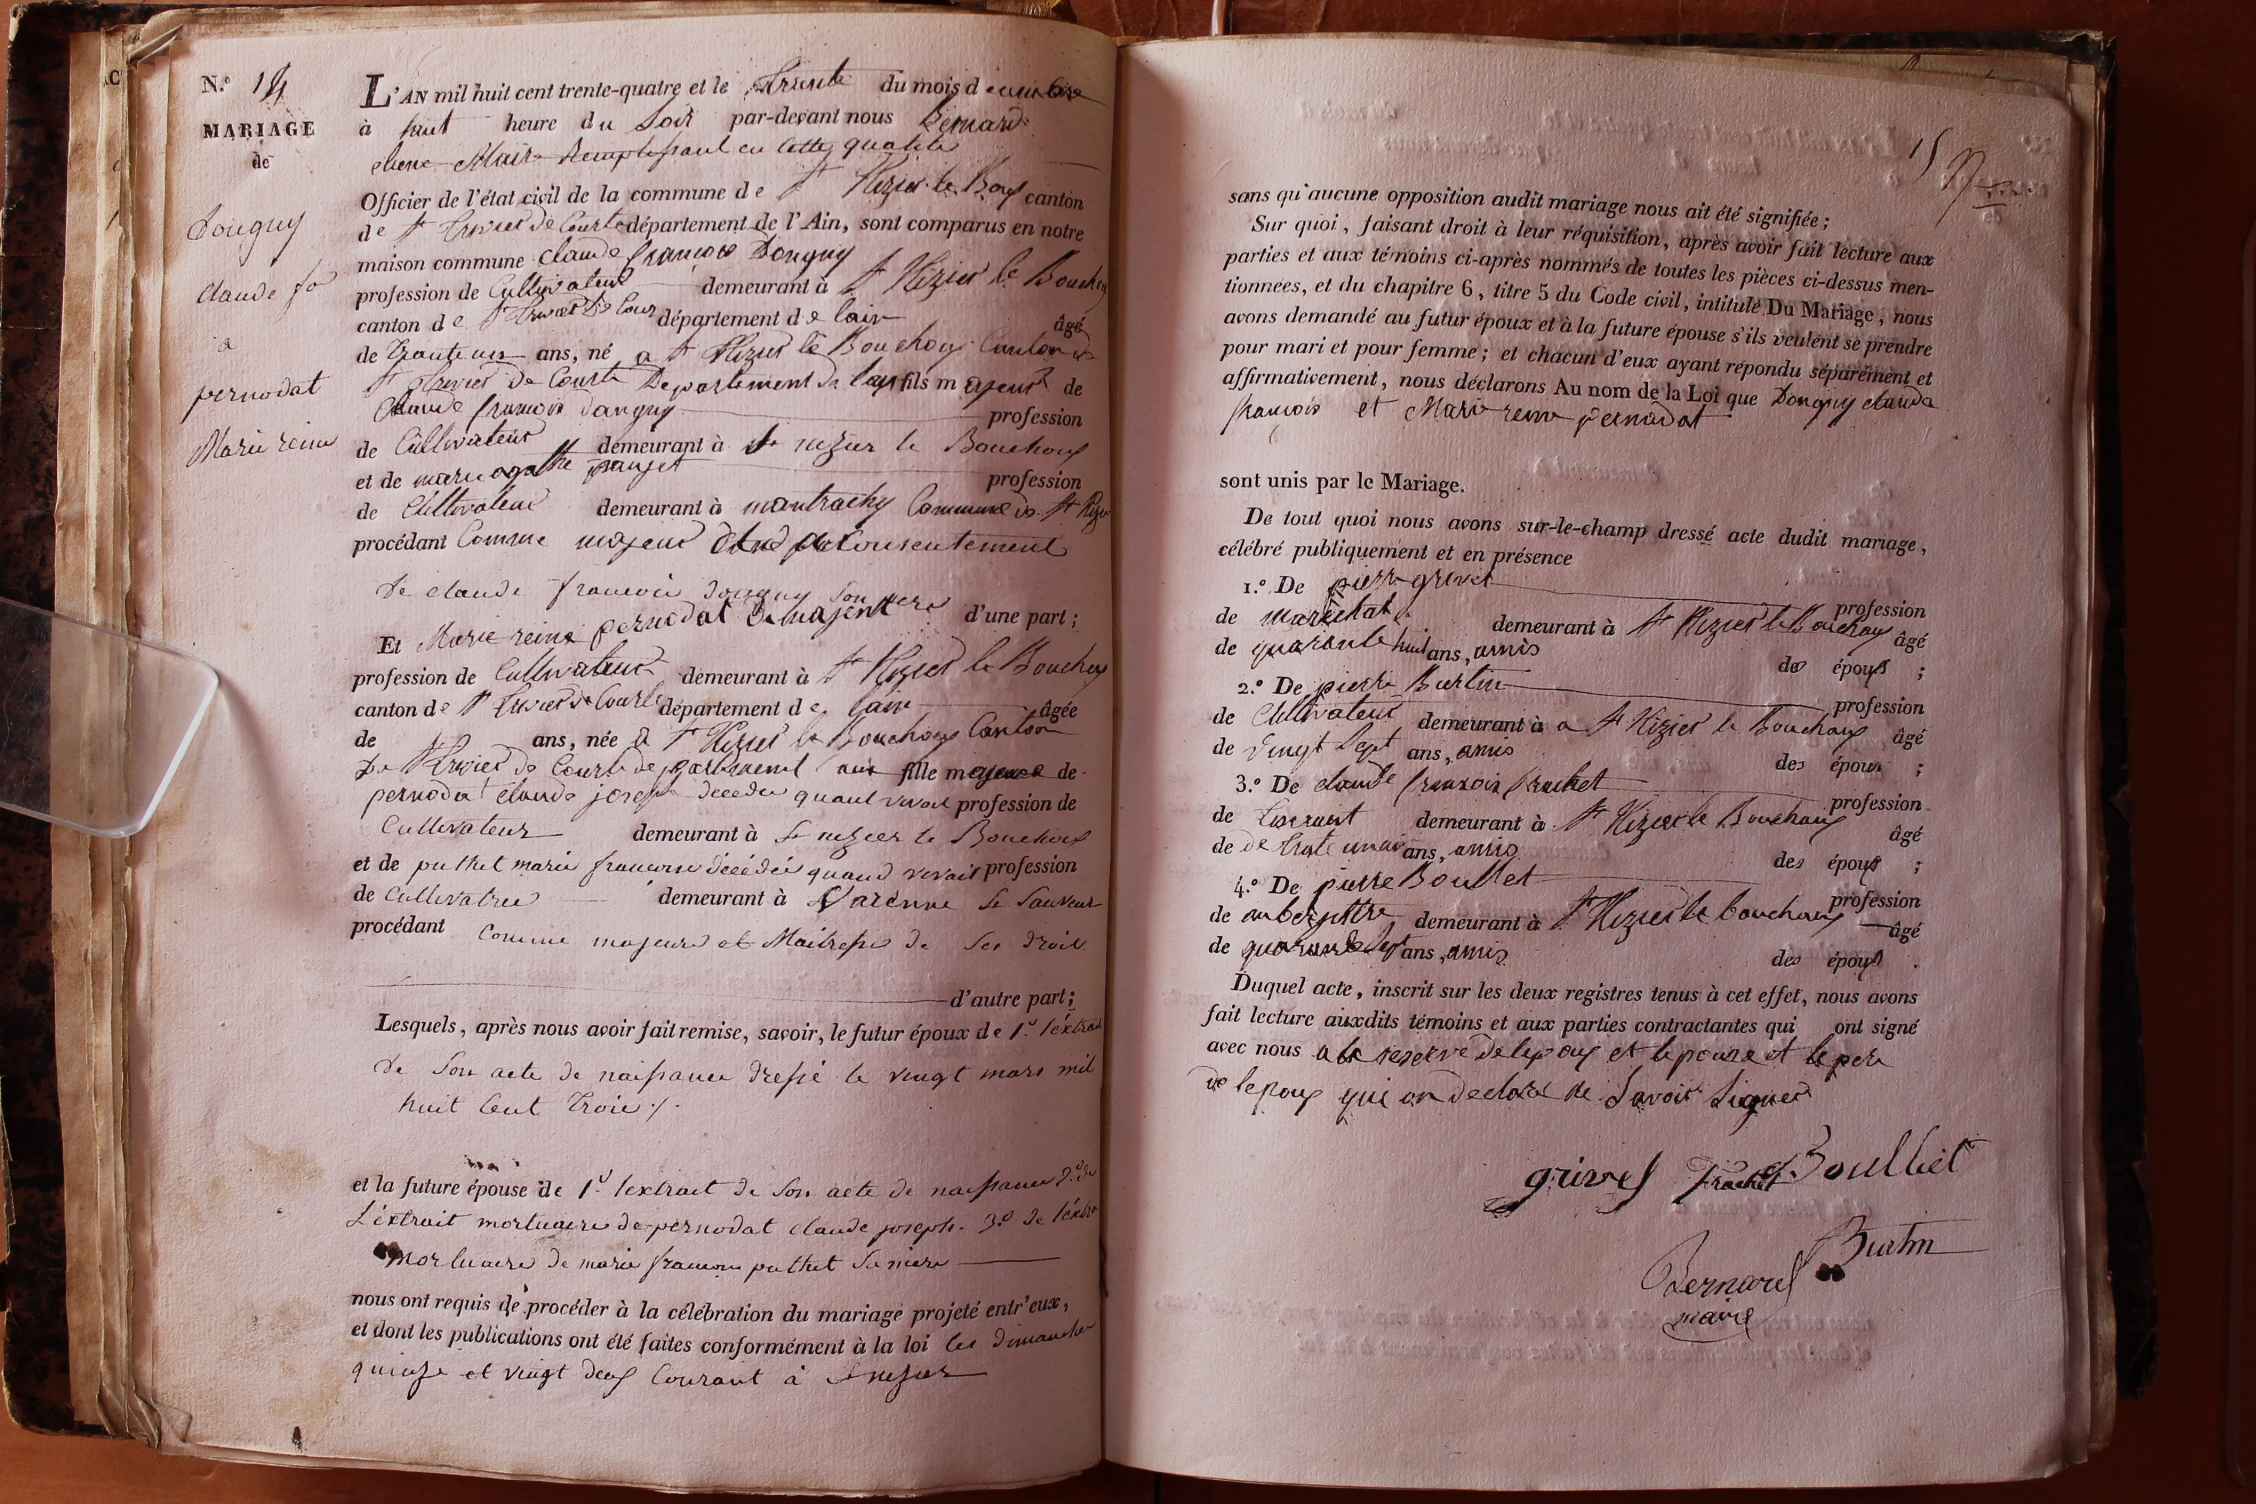 N.º 14
MARIAGE
de
Donguy
claude fs
a
pernodat
Marie reine
L'AN mil huit cent trente-quatre et le trante du mois d
à huit heure du Soir par-devant nous Bernard
Maire Remplissant en cette qualité
Officier de l'état civil de la commune de St Nizier le Boux canton
de St Trivier de Courte département de l'Ain, sont comparus en notre
maison commune claude françois Donguy
profession de Cultivateur demeurant à St Nizier le Bouchoux
canton de St Trivier de Cour département de lain âgé
de trante un ans, né a St Nizier le Bouchoux Canton de
St trivier de Courte Departement de lain fils majeur de
Claude francois donguy profession
de Cultivateur demeurant à St nizier le Bouchoux
et de marie agathe pauget profession
de Cultivateur demeurant à montrachy Commune de St Nizier
procédant Comme majeur consentement
de claude francois donguy son pere d'une part;
Et Marie reine pernodat majeur
profession de Cultivateur demeurant à St Nizier le Bouchoux
canton de St Trivier de Courte département de lain âgée
de ans, née a St Nizier le Bouchoux Canton
De St Trivier de Courte departement ain fille majeure de
pernodat claude joseph décédé quant vivait profession de
Cultivateur demeurant à St nizier le Bouchoux
et de puthet marie francoise décédée quand vivait profession
de Cultivatrice demeurant à Varenne St Sauveur
procédant comme majeure et Maitresse de ses droits
d'autre part;
Lesquels, après nous avoir fait remise, savoir, le futur époux de 1º. l'extrait
de son acte de naissance dressé le vingt mars mil
huit Cent trois ./.
et la future épouse de 1º. l'extrait de son acte de naissance 2º. de
L'extrait mortuaire de pernodat claude joseph. 3º. de l'extrait
mortuaire de marie francoise puthet sa mere
nous ont requis de procéder à la célébration du mariage projeté entr'eux,
et dont les publications ont été faites conformément à la loi les dimanches
quinze et vingt deux Courant à St nizier
15
sans qu'aucune opposition audit mariage nous ait été signifiée;
Sur quoi, faisant droit à leur réquisition, après avoir fait lecture aux
parties et aux témoins ci-après nommés de toutes les pièces ci-dessus men-
tionnées, et du chapitre 6, titre 5 du Code civil, intitulé Du Mariage, nous
avons demandé au futur époux et à la future épouse s'ils veulent se prendre
pour mari et pour femme; et chacun d'eux ayant répondu séparément et
affirmativement, nous déclarons Au nom de la Loi que Donguy claude
françois et Marie reine pernodat
sont unis par le Mariage.
De tout quoi nous avons sur-le-champ dressé acte dudit mariage,
célébré publiquement et en présence
1.º De pierre grivel profession
de marechal demeurant à St Nizier le Bouchoux âgé
de quarante huit ans, amis des époux ;
2.º De pierre Burtin profession
de Cultivateur demeurant à a St Nizier le Bouchoux âgé
de Vingt Sept ans, amis des époux ;
3.º De claude francois frachet profession
de Tisserant demeurant à St Nizier le Bouchoux âgé
de de trate un ans, amis des époux ;
4.º De pierre Boullet profession
de aubergittre demeurant à St Nizier le bouchoux âgé
de quarante Sept ans, amis des époux .
Duquel acte, inscrit sur les deux registres tenus à cet effet, nous avons
fait lecture auxdits témoins et aux parties contractantes qui ont signé
avec nous a la reserve de lepoux et lepouse et le pere
de lepoux qui on declaré ne Savoir Signer
grivel Frachet Boulliet
Burtin
Bernard
maire